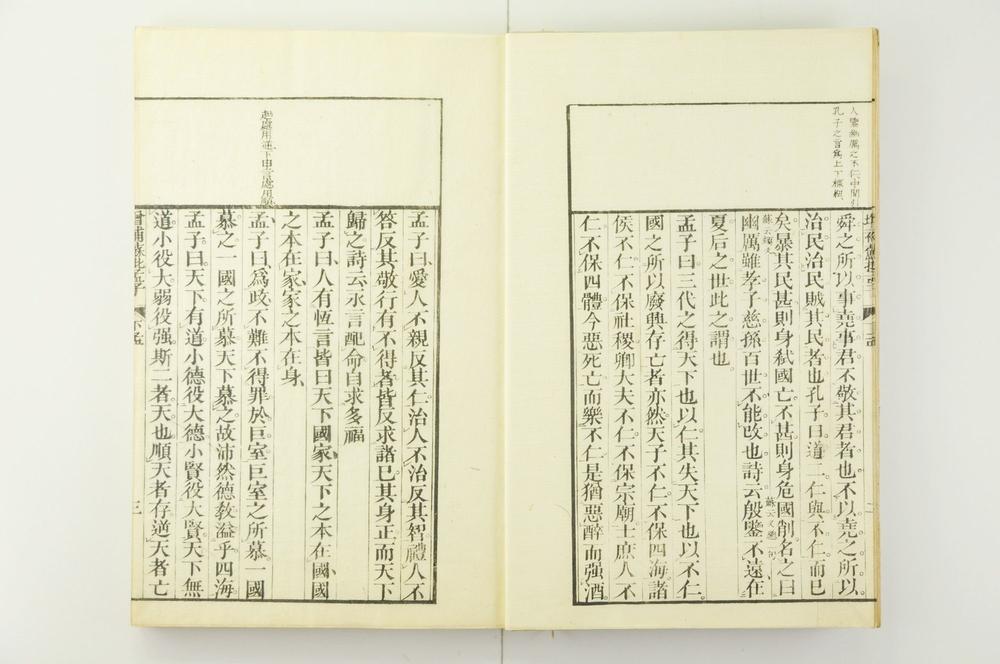 孔子之言爲上下樞紐
舜之所以事堯事君不敬其君者也不以堯之所以
治民治民賊其民者也孔子曰道二仁與不仁而已
矣暴其民甚則身弑國亡不甚則身危國削名之曰
幽厲雖孝子慈孫百世不能改也詩云殷鑒不遠在
夏后之世此之謂也
孟子曰三代之得天下也以仁其失天下也以不仁
國之所以廢興存亡者亦然天子不仁不保四海諸
侯不仁不保社稷卿大夫不仁不保宗廟士庶人不
仁不保四體今惡死亡而樂不仁是猶惡醉而强酒
孟子曰愛人不親反其仁治人不治反其智禮人不
答反其敬行有不得者皆反求諸己其身正而天下
歸之詩云永言配命自求多福
孟子曰人有恆言皆曰天下國家天下之本在國國
之本在家家之本在身
孟子曰爲政不難不得罪於巨室巨室之所慕一國
慕之一國之所慕天下慕之故沛然德敎溢乎四海
孟子曰天下有道小德役大德小賢役大賢天下無
道小役大弱役强斯二者天也順天者存逆天者亡
三